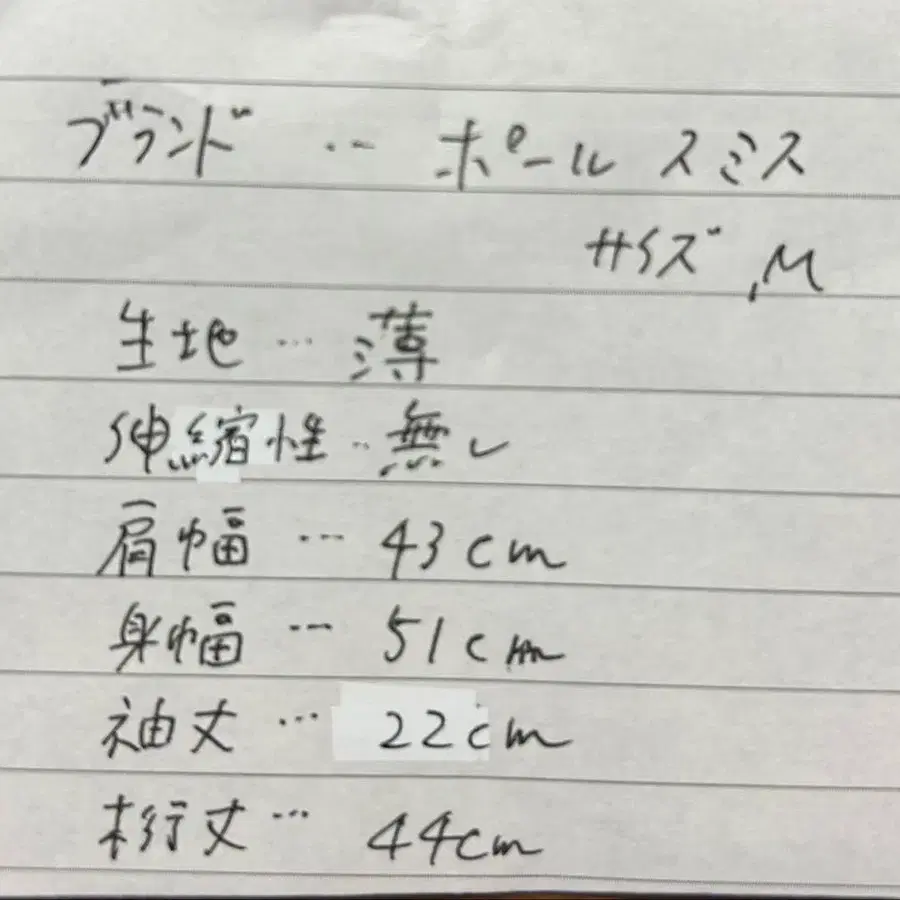 ブランド … ポール スミス
サイズ M
生地 … 薄
伸縮性 … 無し
肩幅 … 43cm
身幅 … 51cm
袖丈 … 22cm
裄丈 … 44cm